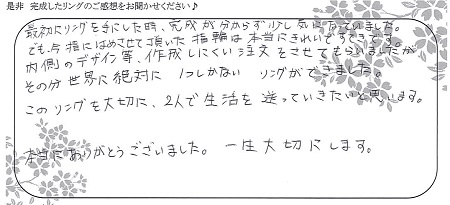 是非 完成したリングのご感想をお聞かせください♪
最初にリングを手にした時、完成が分からず少し気になっていました。
でも今指にはめさせて頂いた指輪は本当にきれいですてきです。
内側のデザイン等、作成しにくい注文をさせてもらいましたが
その分世界に絶対に1つしかない リングができました。
このリングを大切に、2人で生活を送っていきたいと思います。
本当にありがとうございました。一生大切にします。